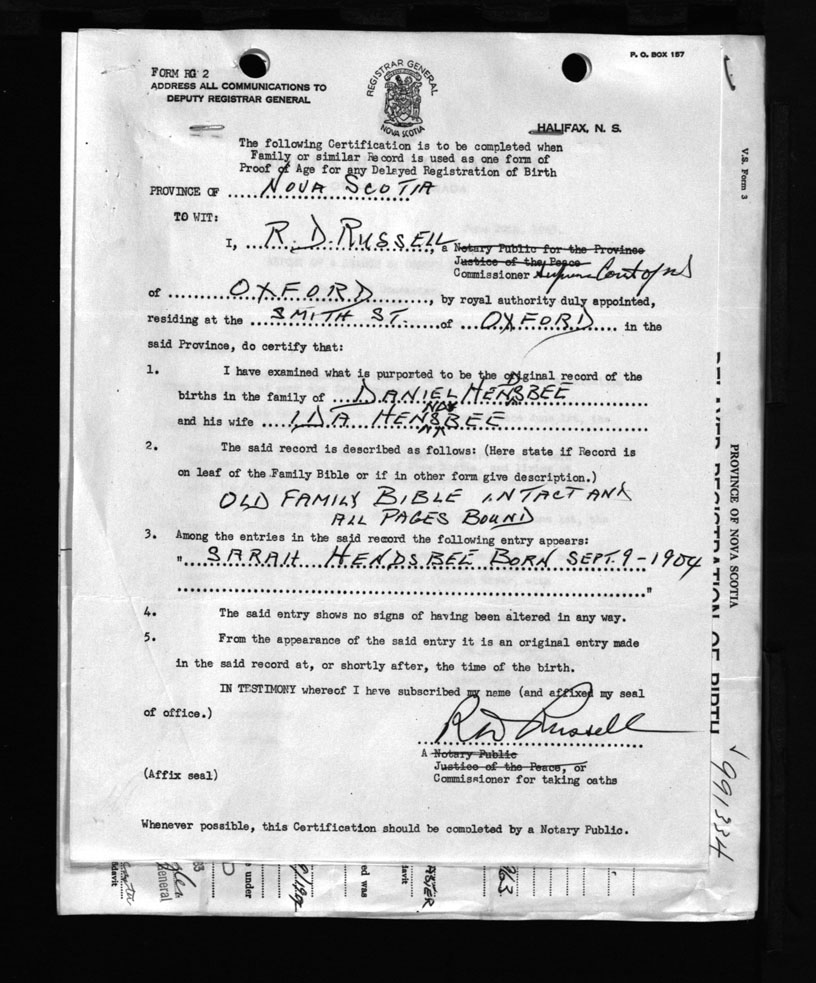 P. O. BOX 157
FORM RG 2
ADDRESS ALL COMMUNICATIONS TO
DEPUTY REGISTRAR GENERAL
REGISTRAR GENERAL
NOVA SCOTIA
HALIFAX, N. S.
The following Certification is to be completed when
Family or similar Record is used as one form of
Proof of Age for any Delayed Registration of Birth
PROVINCE OF NOVA SCOTIA
TO WIT:
I, R. D. RUSSELL, a Notary Public for the Province
Justice of the Peace
Commissioner Supreme Court of NS
of OXFORD, by royal authority duly appointed,
residing at the SMITH ST. of OXFORD in the
said Province, do certify that:
1. I have examined what is purported to be the original record of the
births in the family of DANIEL HENSBEE
and his wife IDA HENSBEE
2. The said record is described as follows: (Here state if Record is
on leaf of the Family Bible or if in other form give description.)
OLD FAMILY BIBLE INTACT AND
ALL PAGES BOUND
3. Among the entries in the said record the following entry appears:
" SARAH HENDSBEE BORN SEPT. 9 - 1904
"
4. The said entry shows no signs of having been altered in any way.
5. From the appearance of the said entry it is an original entry made
in the said record at, or shortly after, the time of the birth.
IN TESTIMONY whereof I have subscribed my name (and affixed my seal
of office.)
R D Russell
A Notary Public
Justice of the Peace, or
(Affix seal)
Commissioner for taking oaths
Whenever possible, this Certification should be completed by a Notary Public.
V.S. Form 3
PROVINCE OF NOVA SCOTIA
REGISTRATION OF BIRTH
991334
General
under
ed was